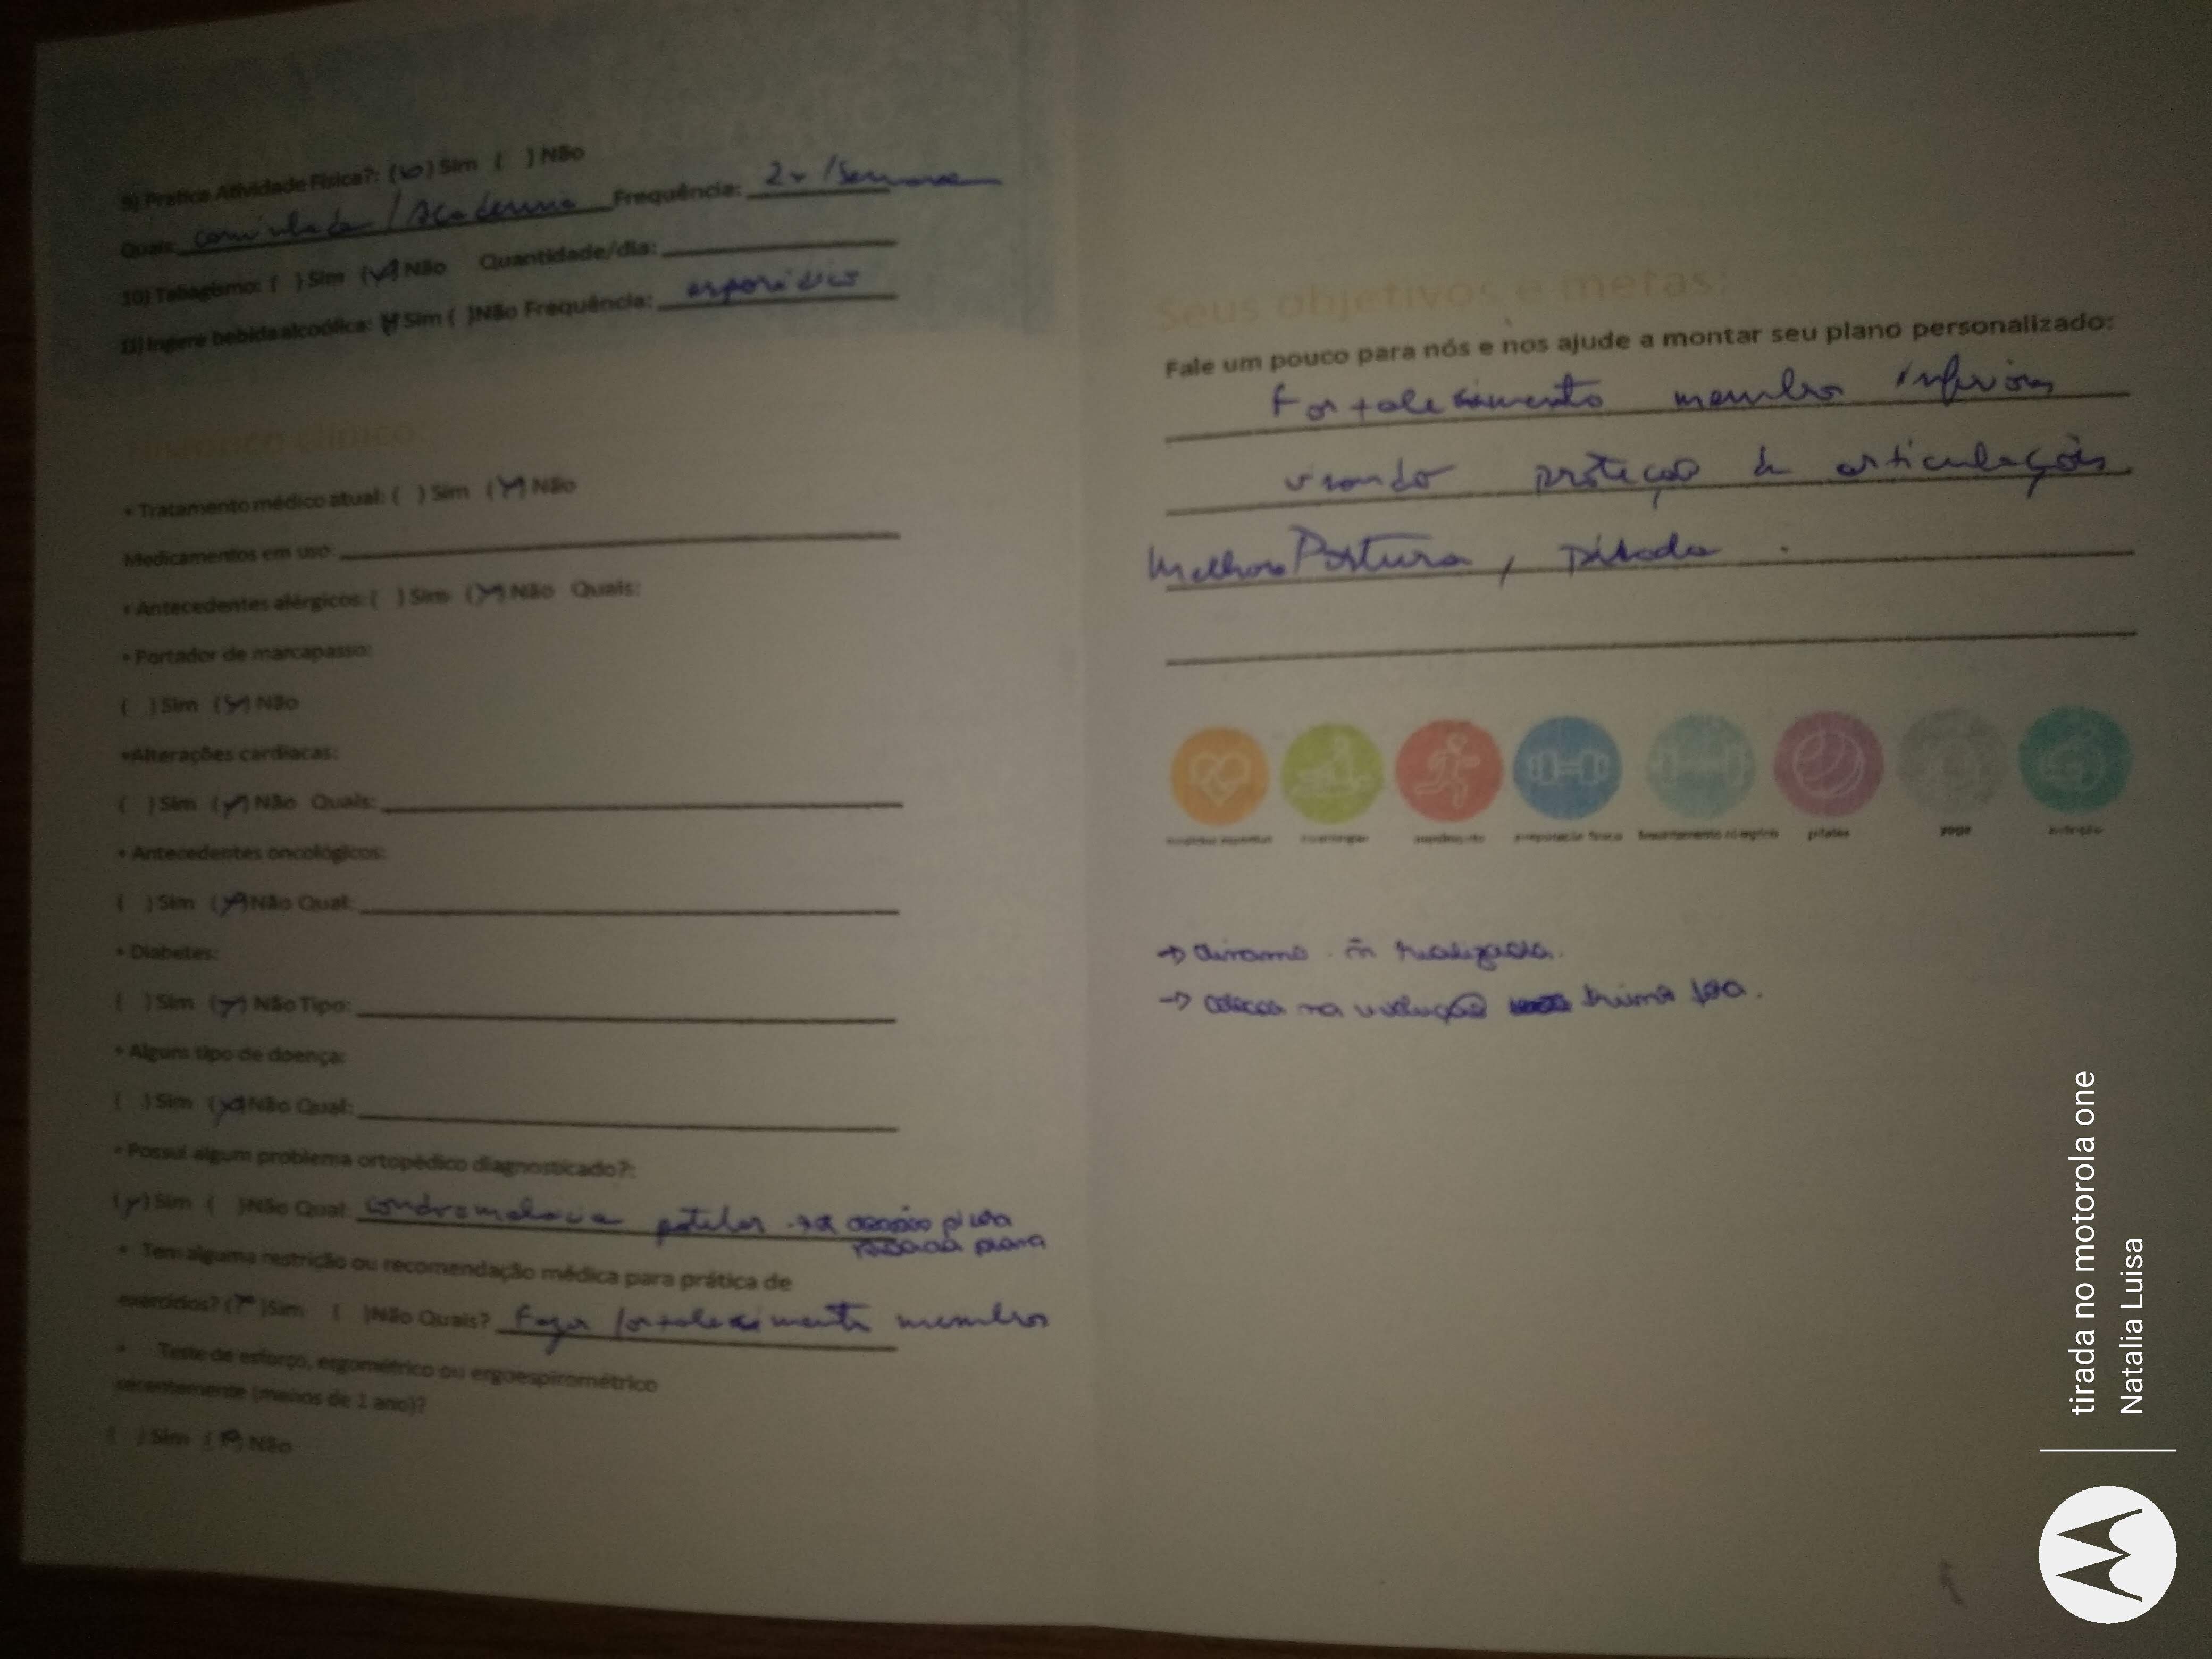 9) Pratica Atividade Física?: (x) Sim ( ) Não
Quais corrida / Academia Frequência: 2x/Semana
10) Tabagismo: ( ) Sim (x) Não Quantidade/dia:
11) Ingere bebida alcoólica: (x) Sim ( ) Não Frequência: esporádico
• Tratamento médico atual: ( ) Sim (x) Não
Medicamentos em uso:
• Antecedentes alérgicos: ( ) Sim (x) Não Quais:
• Portador de marcapasso:
( ) Sim (x) Não
• Alterações cardíacas:
( ) Sim (x) Não Quais:
• Antecedentes oncológicos:
( ) Sim (x) Não Qual:
• Diabetes:
( ) Sim (x) Não Tipo:
• Algum tipo de doença:
( ) Sim (x) Não Qual:
• Possui algum problema ortopédico diagnosticado?:
(x) Sim ( ) Não Qual condromalacia patelar
para
• Tem alguma restrição ou recomendação médica para prática de
exercícios? (x) Sim ( ) Não Quais? Faça fortalecimento membros
• Teste de esforço, ergométrico ou ergoespirométrico
recentemente (menos de 1 ano)?
( ) Sim (x) Não
Seus objetivos e metas:
Fale um pouco para nós e nos ajude a montar seu plano personalizado:
Fortalecimento membro inferior
visando proteção de articulações
Melhora Postura, Pisada.
preparação física
pilates
→
→ na
tirada no motorola one
Natalia Luisa